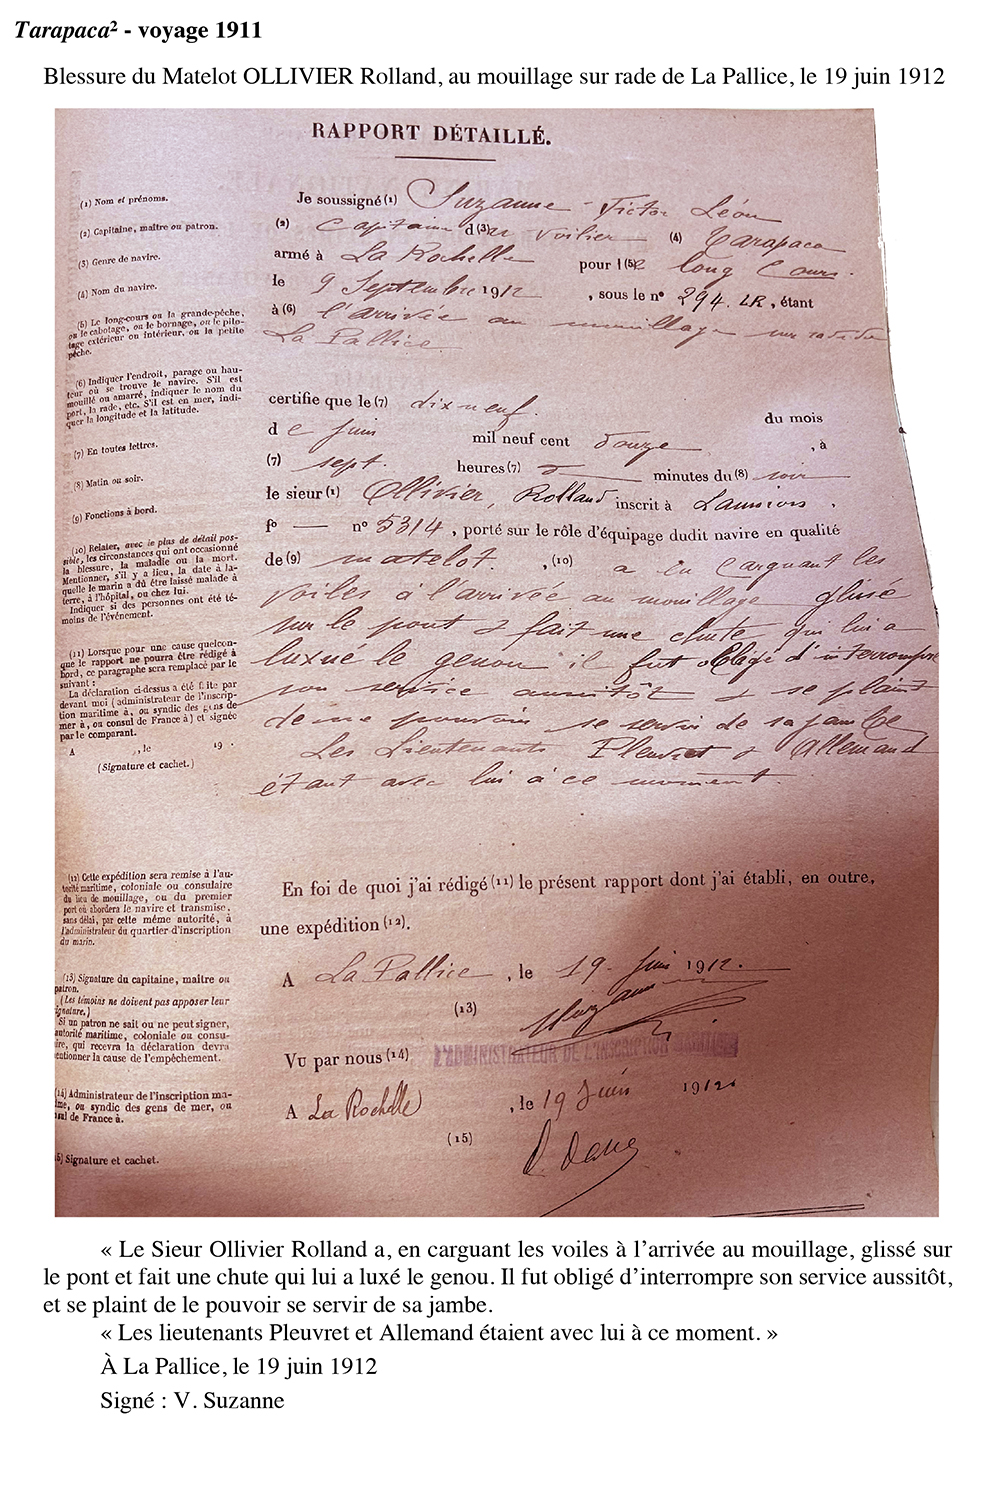 Tarapaca² - voyage 1911
Blessure du Matelot OLLIVIER Rolland, au mouillage sur rade de La Pallice, le 19 juin 1912
RAPPORT DÉTAILLÉ.
(1) Nom et prénoms.
(2) Capitaine, maître ou patron.
(3) Genre de navire.
(4) Nom du navire.
(5) Le long-cours ou la grande-pêche,
ou le cabotage, ou le bornage, ou le pilo-
tage extérieur ou intérieur, ou la petite
pêche.
(6) Indiquer l'endroit, parage ou hau-
teur où se trouve le navire. S'il est
mouillé ou amarré, indiquer le nom du
port, la rade, etc. S'il est en mer, indi-
quer la longitude et la latitude.
(7) En toutes lettres.
(8) Matin ou soir.
(9) Fonctions à bord.
(10) Relater, avec le plus de détail pos-
sible, les circonstances qui ont occasionné
la blessure, la maladie ou la mort.
Mentionner, s'il y a lieu, la date à la-
quelle le marin a dû être laissé malade à
terre, à l'hôpital, ou chez lui.
Indiquer si des personnes ont été té-
moins de l'événement.
(11) Lorsque pour une cause quelcon-
que le rapport ne pourra être rédigé à
bord, ce paragraphe sera remplacé par le
suivant :
La déclaration ci-dessus a été f ite par
devant moi (administrateur de l'inscrip-
tion maritime à, ou syndic des gens de
mer à, ou consul de France à) et signée
par le comparant.
A , le 19 .
(Signature et cachet.)
(12) Cette expédition sera remise à l'au-
torité maritime, coloniale ou consulaire
du lieu de mouillage, ou du premier
port où abordera le navire et transmise,
sans délai, par cette même autorité, à
l'administrateur du quartier d'inscription
du marin.
(13) Signature du capitaine, maître ou
patron.
(Les témoins ne doivent pas apposer leur
signature.)
Si un patron ne sait ou ne peut signer,
autorité maritime, coloniale ou consu-
ire, qui recevra la déclaration devra
entionner la cause de l'empêchement.
(14) Administrateur de l'inscription ma-
me, ou syndic des gens de mer, ou
sul de France à.
5) Signature et cachet.
Je soussigné (1) Suzanne - Victor Léon
(2) Capitaine d(3)u voilier (4) Tarapaca
armé à La Rochelle pour l(5)e long Cours.
le 9 Septembre 1912 , sous le n° 294. LR, étant
à (6) l'arrivée au mouillage sur rade de
La Pallice
certifie que le (7) dix neuf. du mois
de Juin mil neuf cent Douze , à
(7) sept. heures (7) minutes du (8) soir
le sieur (1) Ollivier, Rolland inscrit à ,
f° — n° 5314 , porté sur le rôle d'équipage dudit navire en qualité
de (9) matelot. , (10) a en carguant les
voiles à l'arrivée au mouillage glissé
sur le pont & fait une chute qui lui a
luxé le genou il fut obligé d'interrompre
son service aussitôt & se plaint
de ne pouvoir se servir de sa jambe
Les Lieutenants Pleuvret & Allemand
étant avec lui à ce moment.
En foi de quoi j'ai rédigé (11) le présent rapport dont j'ai établi, en outre,
une expédition (12).
A La Pallice , le 19 Juin 1912.
(13) Suzanne
Vu par nous (14) L'ADMINISTRATEUR DE L'INSCRIPTION MARITIME
A La Rochelle , le 19 Juin 1912
(15)
« Le Sieur Ollivier Rolland a, en carguant les voiles à l'arrivée au mouillage, glissé sur
le pont et fait une chute qui lui a luxé le genou. Il fut obligé d'interrompre son service aussitôt,
et se plaint de le pouvoir se servir de sa jambe.
« Les lieutenants Pleuvret et Allemand étaient avec lui à ce moment. »
À La Pallice, le 19 juin 1912
Signé : V. Suzanne